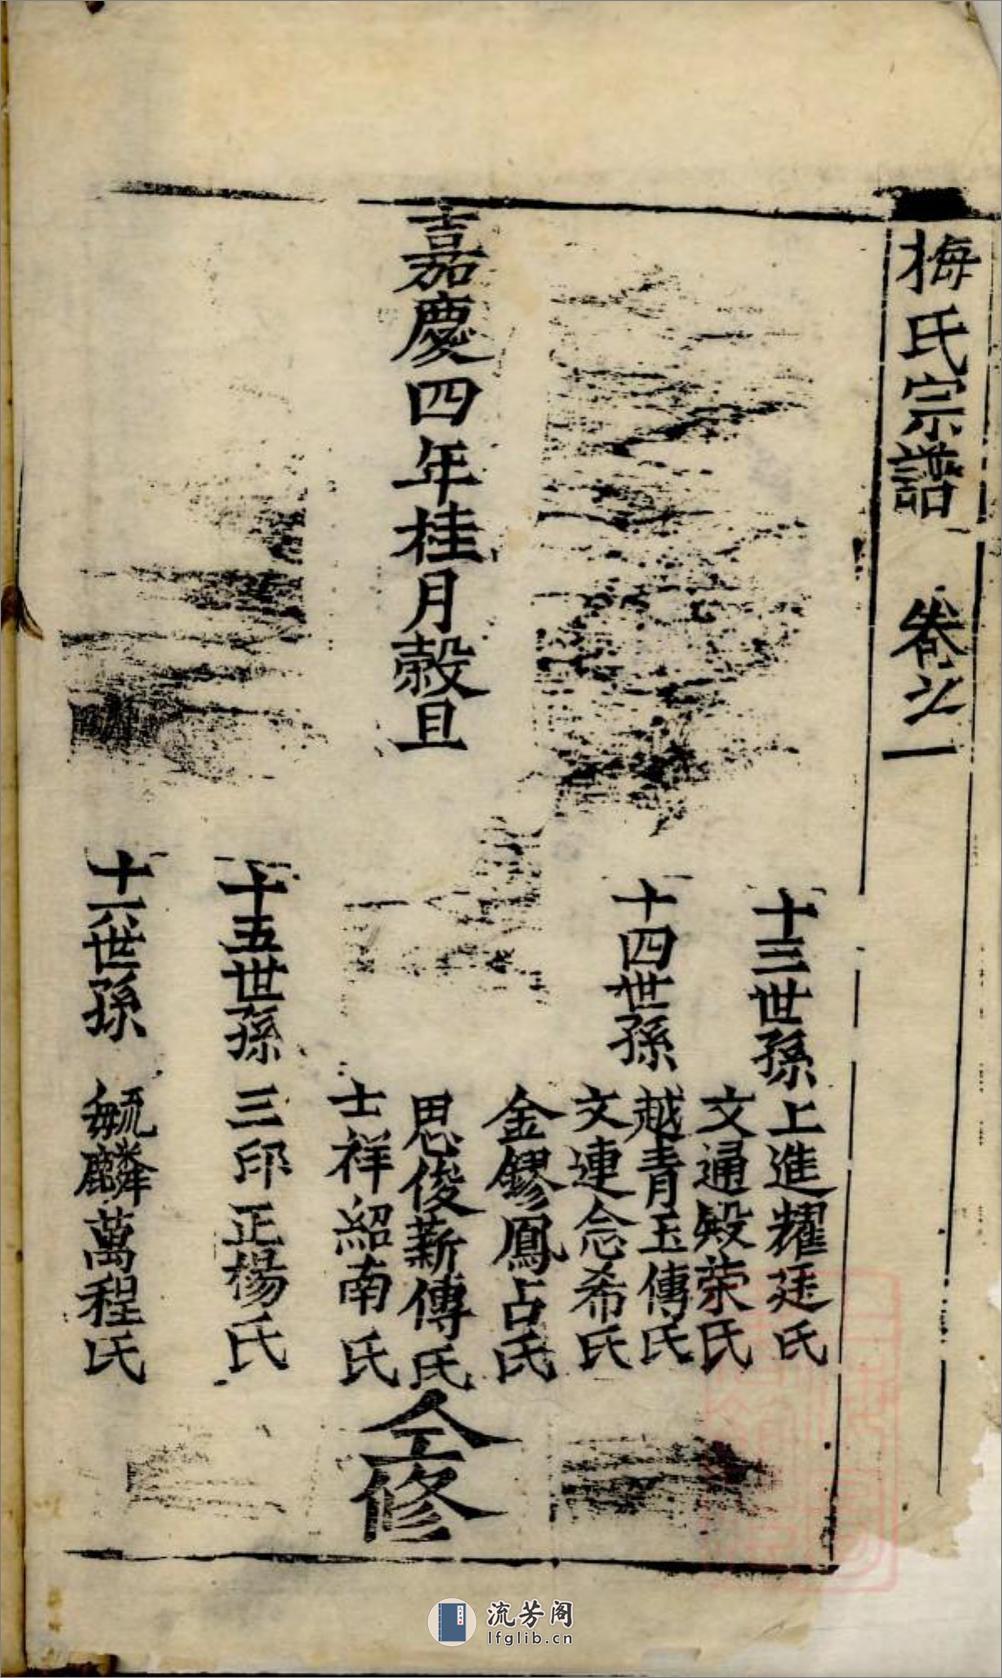 梅氏宗譜 卷之一
十三世孫
上進耀廷氏
文通殿荣氏
十四世孫
越青玉傳氏
文連念希氏
金鏐鳳占氏
嘉慶四年桂月榖旦
思俊薪傳氏
士祥紹南氏
仝修
十五世孫
三印正楊氏
十六世孫
毓麟萬程氏
流芳阁
lfglib.cn